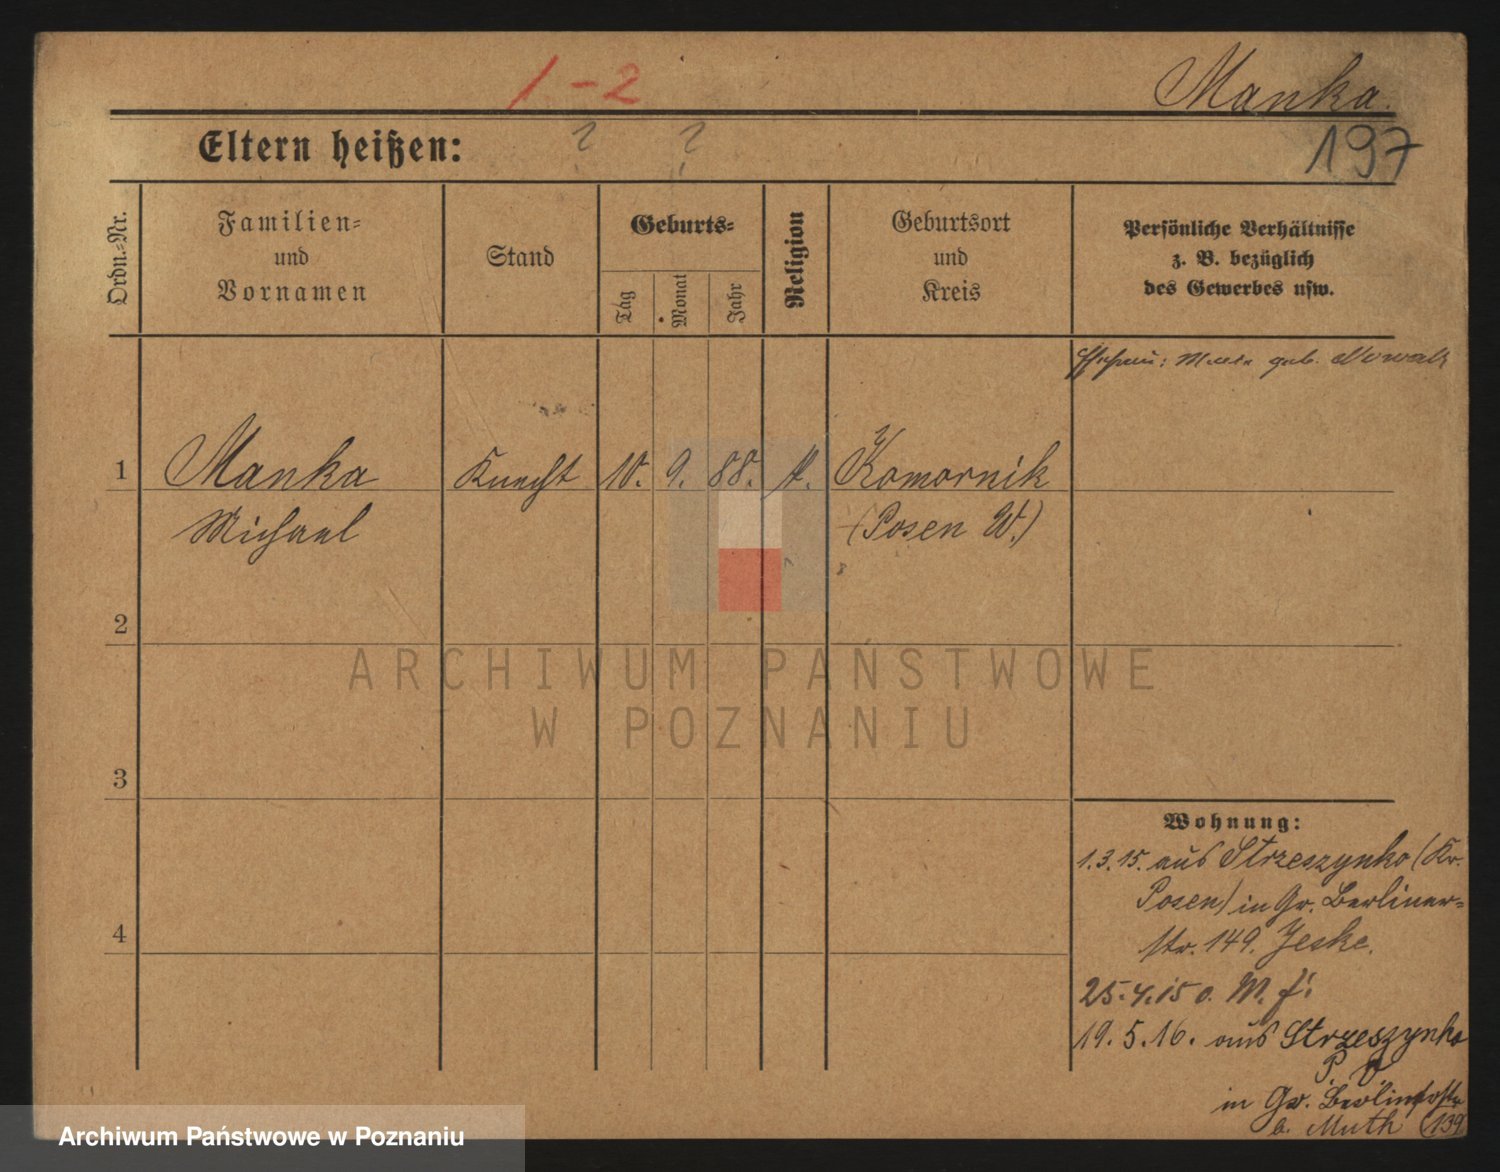 1-2
Manka.
Eltern heißen: ? ?
197
Ordn.-Nr.
Familien-
und
Vornamen
Stand
Geburts-
Tag
Monat
Jahr
Religion
Geburtsort
und
Kreis
Persönliche Verhältnisse
z. B. bezüglich
des Gewerbes usw.
Ehefrau: geb. Nowak
1 Manka Knecht 10. 9. 88. k. Komornik
Michael (Posen W.)
2
3
4
ARCHIWUM PAŃSTWOWE
W POZNANIU
Wohnung:
1.3.15. aus Strzeszynko (Kr.
Posen) in Gr. Berliner-
str. 149. Jeske.
25.4.15 o. M. f.
19.5.16. aus Strzeszynko
P.
in Gr. Berlinerstr
b. Muth (139
Archiwum Państwowe w Poznaniu